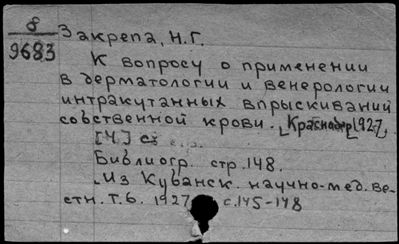 8
9683
Закрепа, Н.Г.
К вопросу о применении
в дерматологии и венерологии
интракутанных впрыскиваний
собственной крови. [Краснодар] 1927,
[4] с.
Библиогр. стр. 148.
Из Кубанск. научно-мед. ве-
стн. т. 6. 1927 с. 145-148